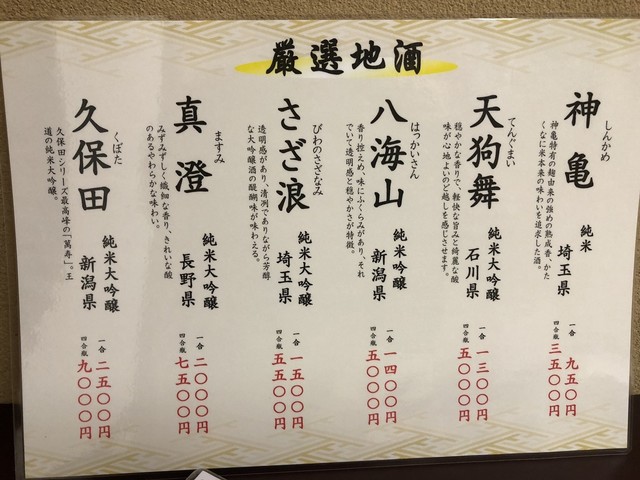 厳選地酒
しんかめ
神亀
純米
埼玉県
神亀特有の麹由来の強めの熟成香、かた
くなに米本来の味わいを追求した酒。
一合 九五〇円
四合瓶 三五〇〇円
てんぐまい
天狗舞
純米大吟醸
石川県
穏やかな香りで、軽快な旨みと綺麗な酸
味が心地よいのど越しを感じさせます。
一合 一三〇〇円
四合瓶 五〇〇〇円
はっかいさん
八海山
純米吟醸
新潟県
香り控えめ、味にふくらみがあり、それ
でいて透明感と穏やかさが特徴。
一合 一四〇〇円
四合瓶 五〇〇〇円
びわのさざなみ
さざ浪
純米大吟醸
埼玉県
透明感があり、清冽でありながら芳醇
な大吟醸酒の醍醐味が味わえる。
一合 一五〇〇円
四合瓶 五五〇〇円
ますみ
真澄
純米大吟醸
長野県
みずみずしく繊細な香り、きれいな酸
のあるやわらかな味わい。
一合 二〇〇〇円
四合瓶 七五〇〇円
くぼた
久保田
純米大吟醸
新潟県
久保田シリーズ最高峰の「萬寿」。王
道の純米大吟醸。
一合 二五〇〇円
四合瓶 九〇〇〇円